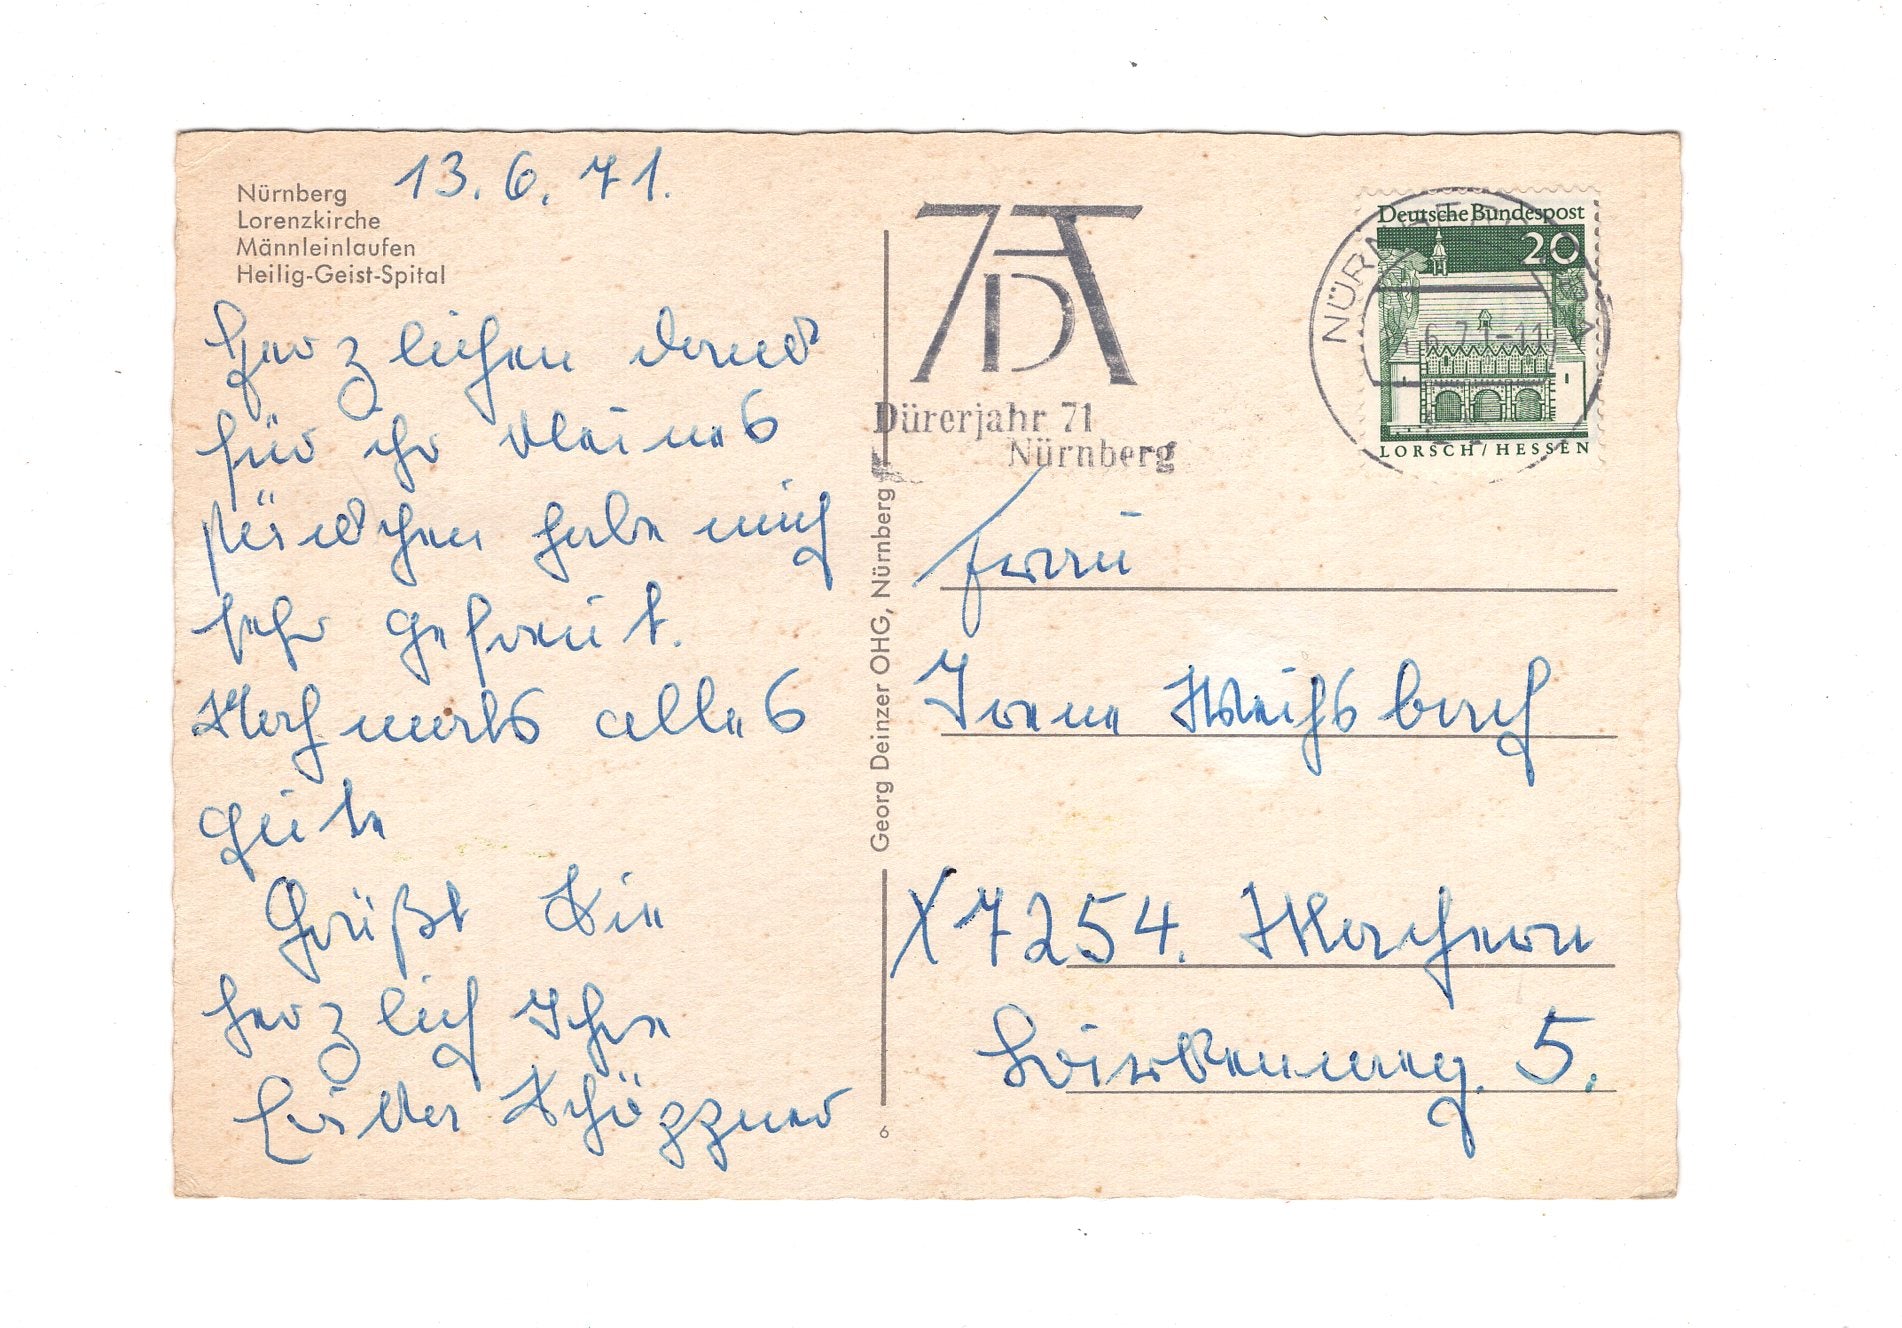 13.6.71.
Nürnberg
Lorenzkirche
Männleinlaufen
Heilig-Geist-Spital
Herzlichen dank
für ihr kleines
päckchen habe mich
sehr gefreut.
Nochmals alles
gute
Grüßt Sie
herzlich Ihre
Schöppner
Georg Deinzer OHG, Nürnberg
6
AD
Dürerjahr 71
Nürnberg
NÜRNBERG
6.71-11
Deutsche Bundespost
20
LORSCH/HESSEN
Frau
Irene Weihsbach
X 7254. Machern
Birkenweg. 5.